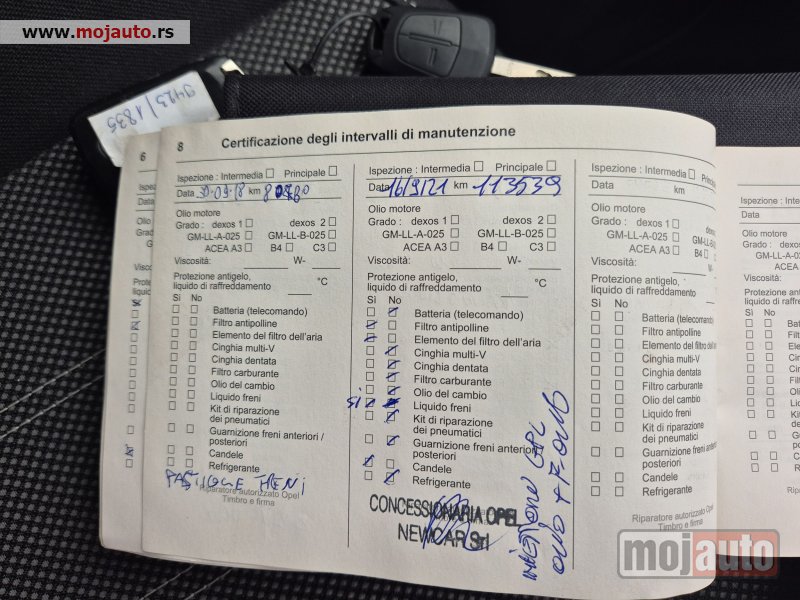 www.mojauto.rs
9423/1835
6
8
Certificazione degli intervalli di manutenzione
Ispezione : Intermedia Principale
Data km
Olio motore
Grado : dexos 1 dexos 2
GM-LL-A-025 GM-LL-B-025
ACEA A3 B4 C3
Viscosità: W-
Protezione antigelo,
liquido di raffreddamento °C
Sì No
Batteria (telecomando)
Filtro antipolline
Elemento del filtro dell'aria
Cinghia multi-V
Cinghia dentata
Filtro carburante
Olio del cambio
Liquido freni
Kit di riparazione
dei pneumatici
Guarnizione freni anteriori /
posteriori
Candele
Refrigerante
FRENI
Riparatore autorizzato Opel
Timbro e firma
Ispezione : Intermedia Principale
Data 16/9/21 km 113539
Olio motore
Grado : dexos 1 dexos 2
GM-LL-A-025 GM-LL-B-025
ACEA A3 B4 C3
Viscosità: W-
Protezione antigelo,
liquido di raffreddamento °C
Sì No
Batteria (telecomando)
Filtro antipolline
Elemento del filtro dell'aria
Cinghia multi-V
Cinghia dentata
Filtro carburante
Olio del cambio
SI Liquido freni
Kit di riparazione
dei pneumatici
Guarnizione freni anteriori
posteriori
Candele
Refrigerante
CONCESSIONARIA OPEL
NEWCAR Srl
GPL
OLIO + F.OLIO
Ispezione : Intermedia Pri
Data km
Olio motore
Grado : dexos 1
GM-LL-A-025 GM-LL-B
ACEA A3 B4
Viscosità:
Protezione antigelo,
liquido di raffreddamento
Sì No
Batteria (telecomando)
Filtro antipolline
Elemento del filtro
Cinghia multi-V
Cinghia dentata
Filtro carburante
Olio del cambio
Liquido freni
Kit di riparazione
dei pneumatici
Guarnizione freni
posteriori
Candele
Refrigerante
Riparatore autorizzato
Timbro e firma
Ispezione : Inter
Data
Olio motore
Grado : de
GM-LL-A
ACE
Viscosità:
Protezione antige
liquido di raffredda
Sì No
Batteria
Filtro ant
Elemen
Cinghia
Cinghia
Filtro ca
Olio del
Liquido
Kit di rip
dei pneu
Guarniz
posteri
Candel
Refrige
Riparatore
Timb
mojauto